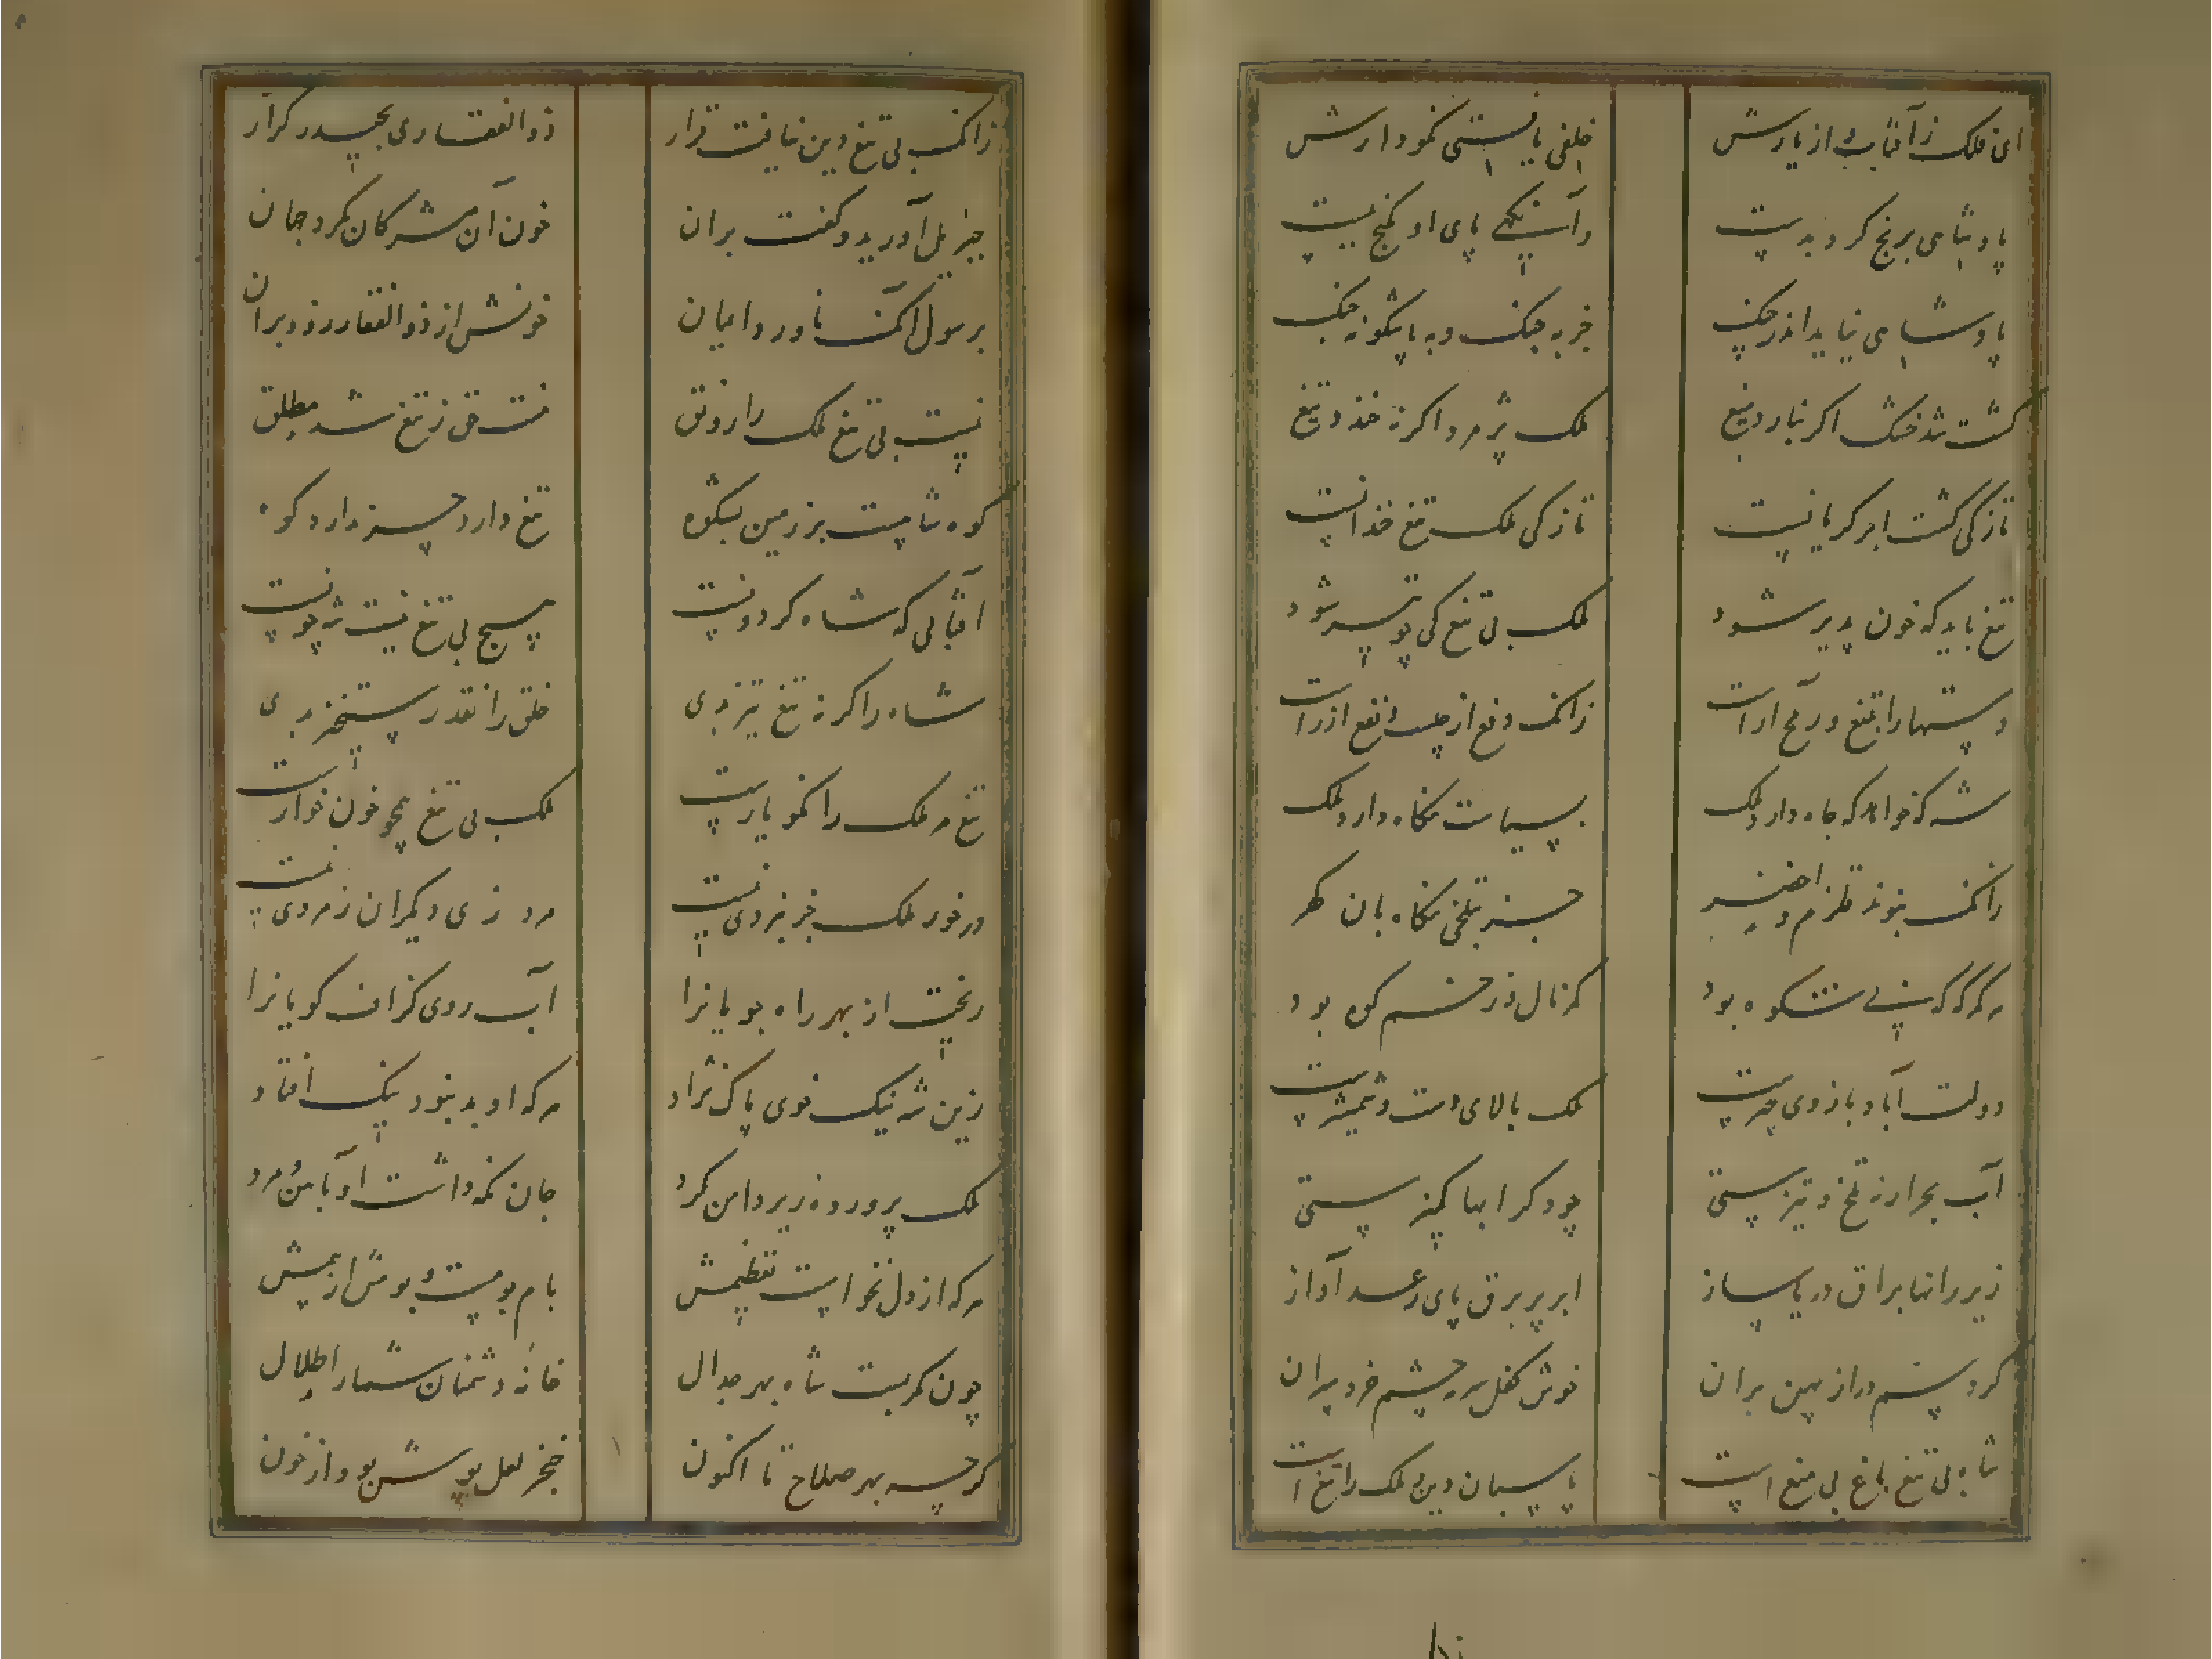 ای فلک زآفتاب و از یارش خلفی بایستی نمودارش
پادشاهی برنج کرد بدست وآسیکهی پای او کنج ببست
پادشاهی نیاید اندر چنک جز به جنک و به پایکونه جنک
کشت شد خشک اکر نبارد میغ ملک پژمرد اکر نخندد تیغ
تازکی کشت ابر کریانیست تازکی ملک تیغ خندانیست
تیغ باید که خون پذیر شود ملک بی تیغ کی چو تیر شود
دستها را تیغ و رمح آراست زانک دفع از چپست و نفع از راست
شه که خواهد که جاه دارد ملک بسیاست نکاه دارد ملک
زانک نبوند قلزم و اخضر جز بتلخی نکاه بان کهر
هر که که شکوه بود که نالان ز زخم کوه بود
دولت آباد بازوی چیرست ملک بالای دست و شمشیرست
آب بحر ار نه تلخ و تیزستی چو دکر آبها کمیزستی
زیر رانها براق دریا ساز ابر پر برق پای رعد آواز
کرد سم دراز پهن بران خوش کفل سر چشم خرد سران
شاه بی تیغ باغ بی میغ است پاسبان دین و ملک را تیغ است
زانک بی تیغ دین نیافت قرار ذوالفقاری بحیدر کرار
جبرییل آورید و کفت بران خون آن مشرکان کمره جان
برسول آنک ناورد ایمان خونش از ذوالفقار زود بران
نیست بی تیغ ملک را رونق هست حق ز تیغ شد مطلق
کوه شاهیست بر زمین بشکوه تیغ دارد چنین دارد کوه
آفتابی که شاه کردونست هیچ بی تیغ نیست شه چونست
شاه را کر نه تیغ تیز بدی خلق را نقد رستخیز بدی
تیغ مر ملک را نکو یارست ملک بی تیغ همچو خون خوارست
در خور ملک جز نبردی نیست مرد زی دیکران ز مردی نیست
ریخت از بهر راه جویانرا آب روی کزاف کویانرا
زین شه نیک خوی پاک نژاد هر که او بد نبود نیک افتاد
ملک پرورده زیر دامن کرد جان نکه داشت او با من مرد
هر که از دل نخواست تعظیمش بام بومست و بومش از بیمش
چون کمر بست شاه بهر جدال خانه دشمنان شمار اطلال
کرچه بهر صلاح تا اکنون خنجر لعل پوشش بود از خون